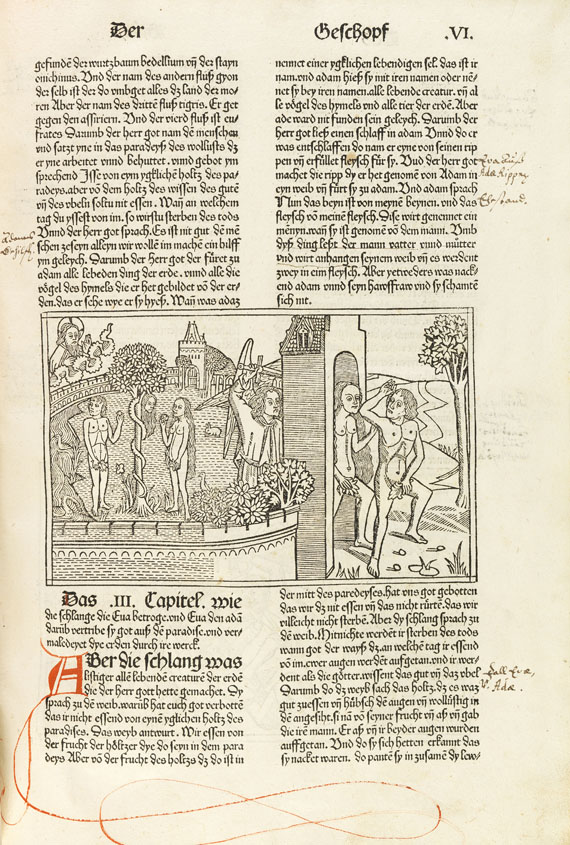 Der Geschopf .VI.
gefundē der wurtzbaum bedellium vn̄ der stayn
onichinus. Vnd der nam des andern fluß gyon
der selb ist der do vmbget alles dz land der mo-
ren Aber der nam des drittē fluß tigris. Er get
gegen den assiriern. Vnd der vierd fluß ist eu-
frates Darumb der herr got nam dē menschen
vnd satzt yne in das paradeyß des wollusts dz
er yne arbeitet vnnd behuttet. vnnd gebot ym
sprechend Isse von eym ygkliche holtz des pa-
radeys. aber vō dem holtz des wissen des gutē
vn̄ des vbeln soltu nit essen. Wan̄ an welchem
tag du yssest von im. so wirstu sterben des tods
Vnnd der herr got sprach. Es ist nit gut dē me
schen zeseyn alleyn wir wollē im machē ein hilff
ym geleych. Darumb der herr got der füret zu
adam alle lebeden ding der erde. vnnd alle die
vögel des hymels die er het gebildet vō der er-
den. das er sche wye er sy hyeß. Wan̄ was adaz
nennet einer ygklichen lebendigen sel. das ist ir
nam. vnd adam hieß sy mit iren namen oder nē-
net sy bey iren namen. alle lebende creatur. vn̄ al
le vögel des hymels vnd alle tier der erdē. Aber
ade ward nit funden sein geleych. Darumb der
herr got ließ einen schlaff in adam Vnnd do er
was entschlaffen do nam er eyne von seinen rip
pen vn̄ erfüllet fleysch für sy. Vnd der herr got
machet die ripp dy er het genomē von Adam in
eyn weib vn̄ fürt sy zu adam. Vnd adam sprach
Nun das beyn ist von meynē beynen. vnd das
fleysch vō meinē fleysch. Dise wirt genennet ein
mēnyn. wan̄ sy ist genomē vō dem mann. Vmb
dyß ding leßt der mann vatter vnnd mütter
vnd wirt anhangen seynem weib vn̄ es werdent
zwey in eim fleysch. Aber yetweders was nack-
end adam vnnd seyn hawsfraw vnd sy schamtē
sich nit.
Eva auß
Adæ Rippen
Ehestand.
Das .III. Capitel. wie
die schlange die Eua betroge. vnd Eua den adā
darūb vertribe sy got auß dē paradise. vnd ver-
maledeyet dye erden durch ire werck.
ABer die schlang was
listiger allē lebendē creaturē der erdē
die der herr gott hette gemachet. Dy
sprach zu dē weib. warūb hat euch got vorbottē
das ir nicht essend von eynē yglichen holtz des
paradises. Das weyb antwurt. Wir essen von
der frucht der höltzer dye do seyn in dem para
deys Aber vō der frucht des holtzs dz do ist in
der mitt des paredeyses. hat vns got gebotten
das wir dz nit essen vn̄ das nicht rürtē. das wir
villeicht nicht sterbē. Aber dy schlang sprach zu
dē weib. Mitnichte werdēt ir sterben des tods
wann got der wayß dz. an welchē tag ir essend
vō im. ewer augen werdēt aufgetan. vnd ir wer-
dent als die götter. wissent das gut vn̄ daz vbel
Darumb do dz weyb sach das holtz. dz es waz
gut zuessen vn̄ hübsch dē augen vn̄ wollüstig in
dē angesiht. sī nā vō seyner frucht vn̄ aß vn̄ gab
die irē mann. Er aß vn̄ ir beyder augen wurden
auffgetan. Vnd do sy sich hetten erkannt das
sy nacket waren. do pantē sy in zusamē dy lew-
Fall Evæ,
v. Adæ.